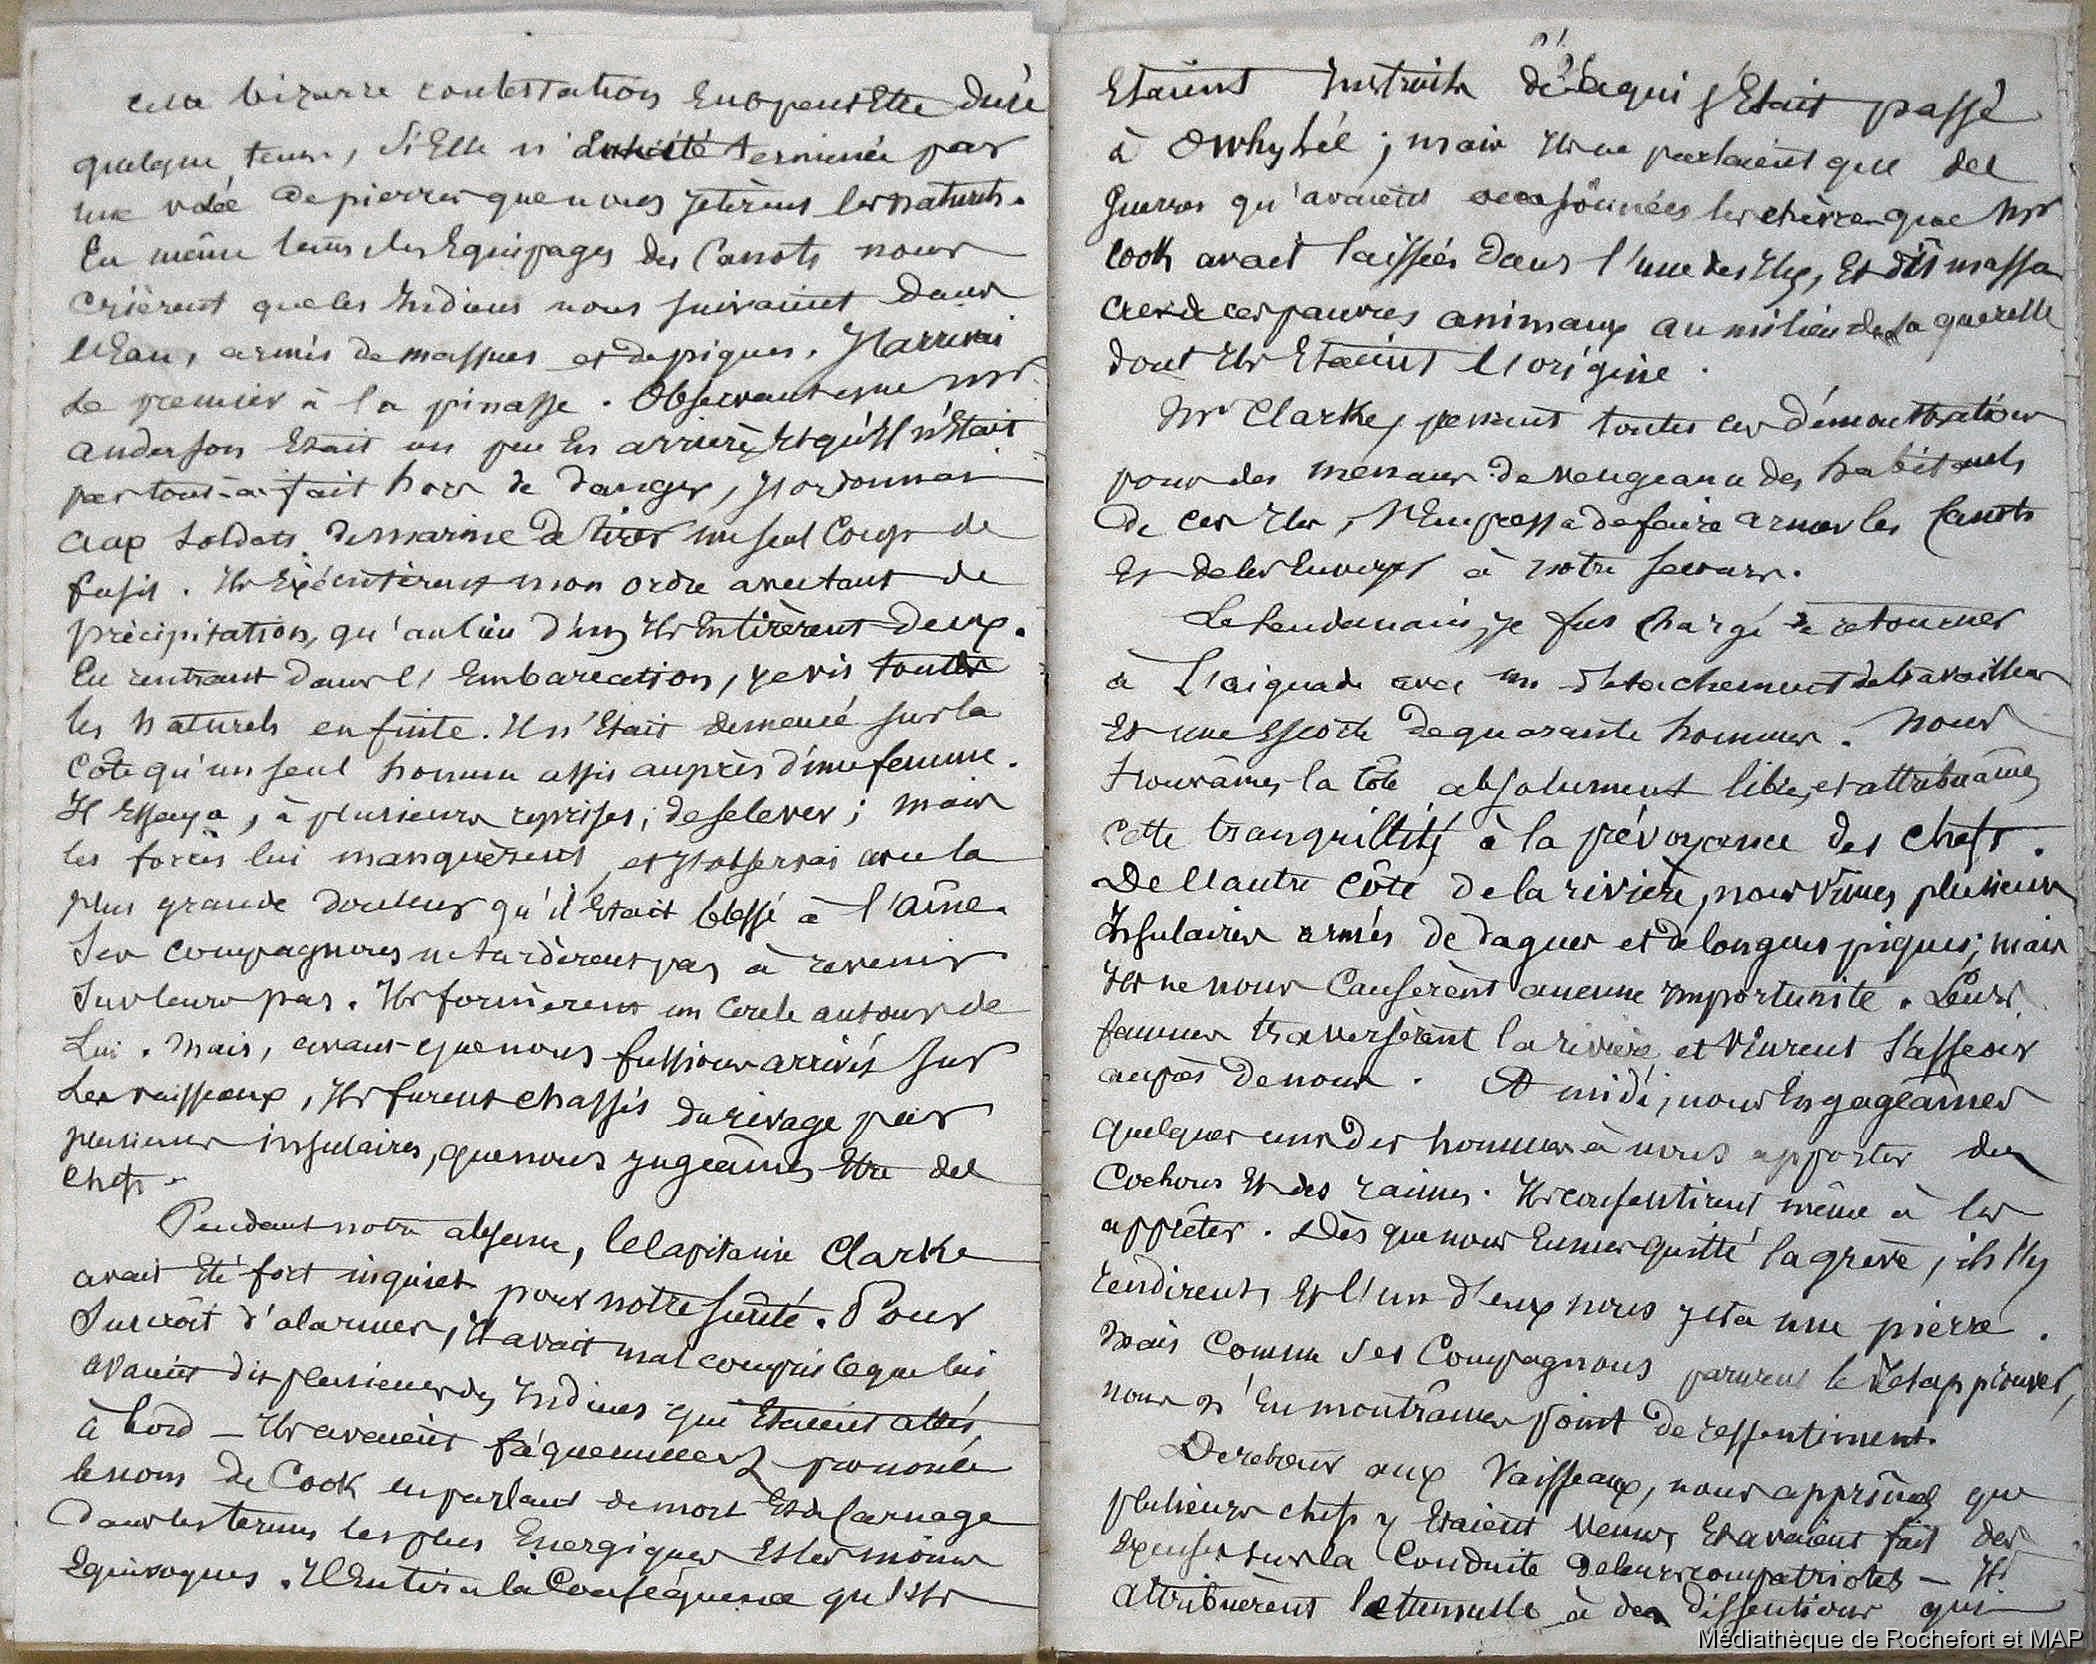 cette bizarre contestation eut peut Etre duré
quelque tems, si Elle n'eut été terminée par
une volée de pierres que nous jetèrent les naturels.
En même tems les Equipages des Canots nous
crièrent que les Indiens nous suivaient dans
l'Eau, armés de massues et de piques. J'arrivai
le premier à la pinasse. Observant que Mr
anderson Etait un peu En arrière, Et qu'Il n'Etait
pas tout-à-fait hors de danger, j'ordonnai
aux soldats de marine de tirer un seul Coup de
fusil. Ils Exécutèrent mon ordre avec tant de
précipitation, qu'au lieu d'un, Ils En tirèrent deux.
En rentrant dans l'Embarcation, je vis tous
les naturels en fuite. Il n'Etait demeuré sur la
Côte qu'un seul homme assis auprès d'une femme.
Il Essaya, à plusieurs reprises, de se lever; mais
les forces lui manquèrent, et j'observai avec la
plus grande douleur qu'il Etait blessé à l'aîne.
Ses compagnons ne tardèrent pas à revenir
sur leurs pas. Ils formèrent un Cercle autour de
Lui. Mais, avant que nous fussions arrivés sur
Les vaisseaux, Ils furent chassés du rivage par
plusieurs insulaires, que nous jugeâmes Etre des
chefs.
Pendant notre absence, le Capitaine Clarke
avait Eté fort inquiet pour notre sureté. Pour
Surcroît d'alarmes, Il avait mal compris ce que lui
avaient dit plusieurs des Indiens qui Etaient allés
à bord – Ils avaient fréquemment prononcé
le nom de Cook en parlant de mort Et de Carnage
dans les termes les plus Energiques Et les moins
Equivoques. Il En tira la Conséquence qu'Ils
Etaient Instruits de ce qui s'Etait passé
à Owhyhée; mais Ils ne parlaient que des
Guerres qu'avaient occasionnées les chèvres que Mr
Cook avait laissées dans l'une des Iles, Et du massa
cre de ces pauvres animaux au milieu de la querelle
dont Ils Etaient l'origine.
Mr Clarke, prenant toutes ces démonstrations
pour des menaces de vengeance des habitants
de ces Iles, s'Empressa de faire armer les Canots
Et de les Envoyer à notre secours.
Le lendemain, je fus chargé de retourner
à l'aiguade avec un détachement de travailleurs
Et une Escorte de quarante hommes. Nous
trouvâmes la Côte absolument libre, et attribuâmes
cette tranquillité à la prévoyance des Chefs.
De l'autre Côté de la rivière, nous vîmes plusieurs
Insulaires armés de dagues et de longues piques; mais
Ils ne nous Causèrent aucune Importunité. Leurs
femmes traversèrent la rivière, et vinrent s'asseoir
auprès de nous. A midi, nous Engageâmes
quelques uns des hommes à nous apporter des
Cochons Et des racines. Ils consentirent même à les
apprêter. Dès que nous Eumes quitté la grève, ils s'y
rendirent, Et l'un d'eux nous jeta une pierre.
Mais Comme ses Compagnons parurent le désapprouver,
nous n'En montrâmes point de ressentiment.
De retour aux Vaisseaux, nous apprîmes que
plusieurs chefs y Etaient venus, Et avaient fait des
Excuses sur la Conduite de leurs compatriotes – Ils
attribuèrent le tumulte à des dissentions qui
Médiathèque de Rochefort et MAP